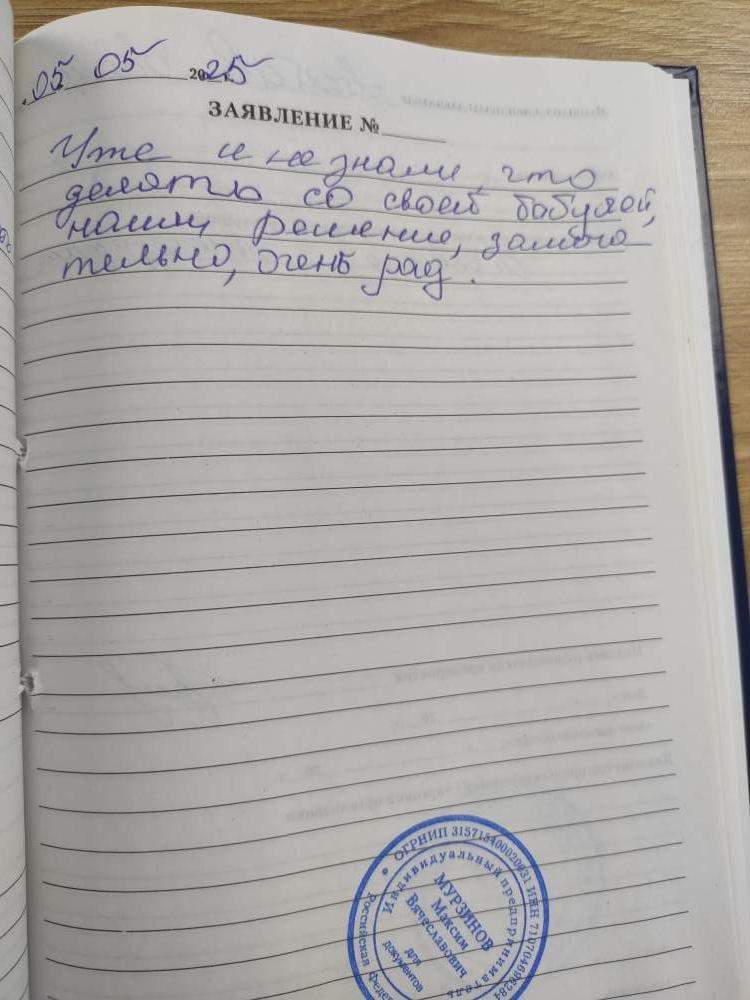 05 05 2025 г.
ЗАЯВЛЕНИЕ №
Уже и не знали, что
делать со своей бабулей,
нашли решение, замеча
тельно, очень рад.
ОГРНИП 315715400020631 ИНН
Индивидуальный предприниматель
МУРЗИНОВ
Максим
Вячеславович
для
документов
Российская